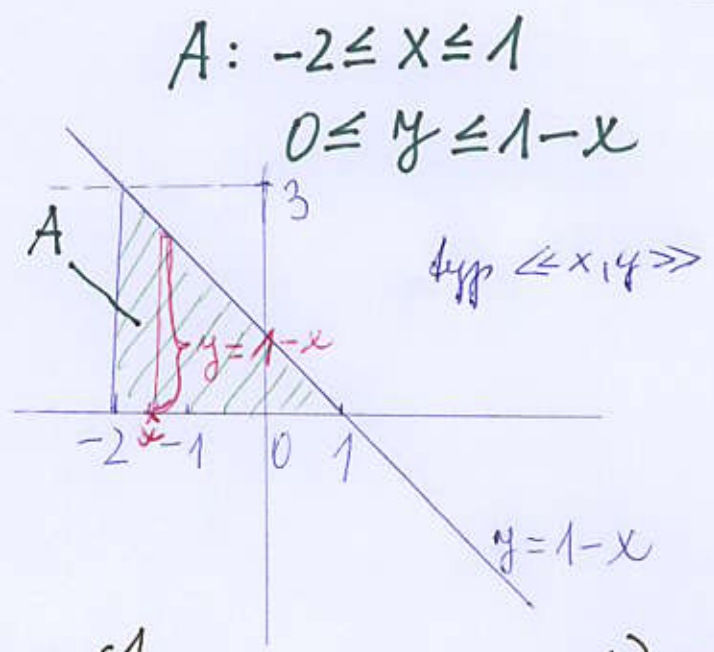 A: -2 ≤ x ≤ 1
0 ≤ y ≤ 1-x
3
A
typ <<x,y>>
y = 1-x
-2 x -1 0 1
y = 1-x